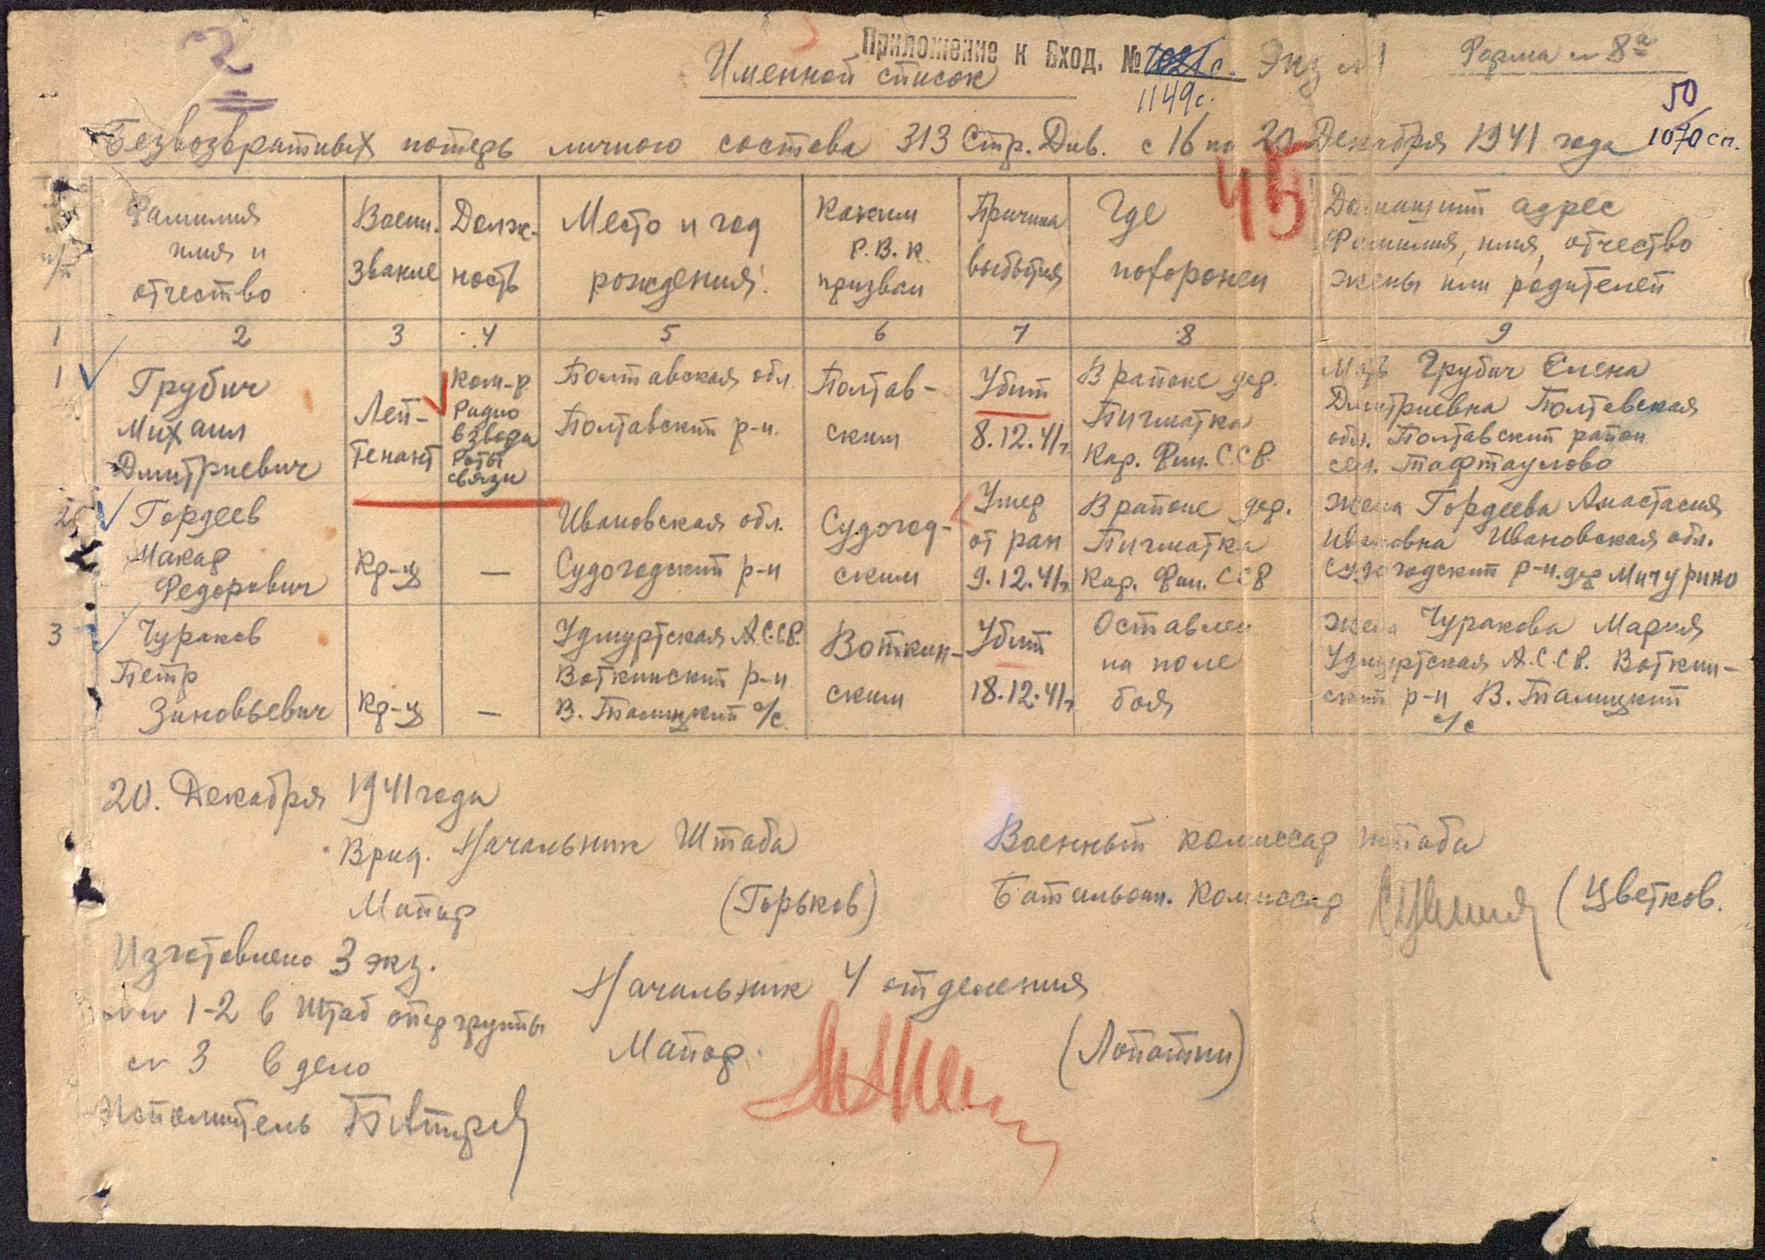 2
Приложение к Вход. №
Именной список
1149с.
Экз № 1
Форма № 8а
50
1070 сп.
Безвозвратных потерь личного состава 313 Стр. Див. с 16 по 20 Декабря 1941 года
45
п/п
Фамилия
имя и
отчество
Воен.
звание
Долж-
ность
Место и год
рождения
Каким
Р.В.К.
призван
Причина
выбытия
Где
похоронен
Домашний адрес
Фамилия, имя, отчество
жены или родителей
1 2 3 4 5 6 7 8 9
1
Грубич
Михаил
Дмитриевич
Лей-
тенант
Ком-р
Радио
взвода
Роты
связи
Полтавская обл.
Полтавский р-н.
Полтав-
ским
Убит
8.12.41г.
В районе дер.
Пигматка
Кар. Фин. ССР.
Мать Грубич Елена
Дмитриевна Полтавская
обл. Полтавский район
сел. Тафтаулово
2
Гордеев
Макар
Федорович
Кр-ц
—
Ивановская обл.
Судогодский р-н
Судогод-
ским
Умер
от ран
9.12.41г.
В районе дер.
Пигматка
Кар. Фин. ССР
Жена Гордеева Анастасия
Ивановна Ивановская обл.
Судогодский р-н. дер Мичурино
3
Чураков
Петр
Зиновьевич
Кр-ц
—
Удмуртская А.С.С.Р.
Воткинский р-н
В. Талицкий с/с
Воткин-
ским
Убит
18.12.41г.
Оставлен
на поле
боя
Жена Чуракова Мария
Удмуртская А.С.С.Р. Воткин-
ский р-н В. Талицкий
с/с
20. Декабря 1941 года
Врид. Начальник Штаба
Майор (Горьков)
Военный комиссар штаба
Батальон. Комиссар (Цветков.
Изготовлено 3 экз.
№№ 1-2 в Штаб опергруппы
№ 3 в дело
Исполнитель
Начальник 4 отделения
Майор. (Лопаткин)